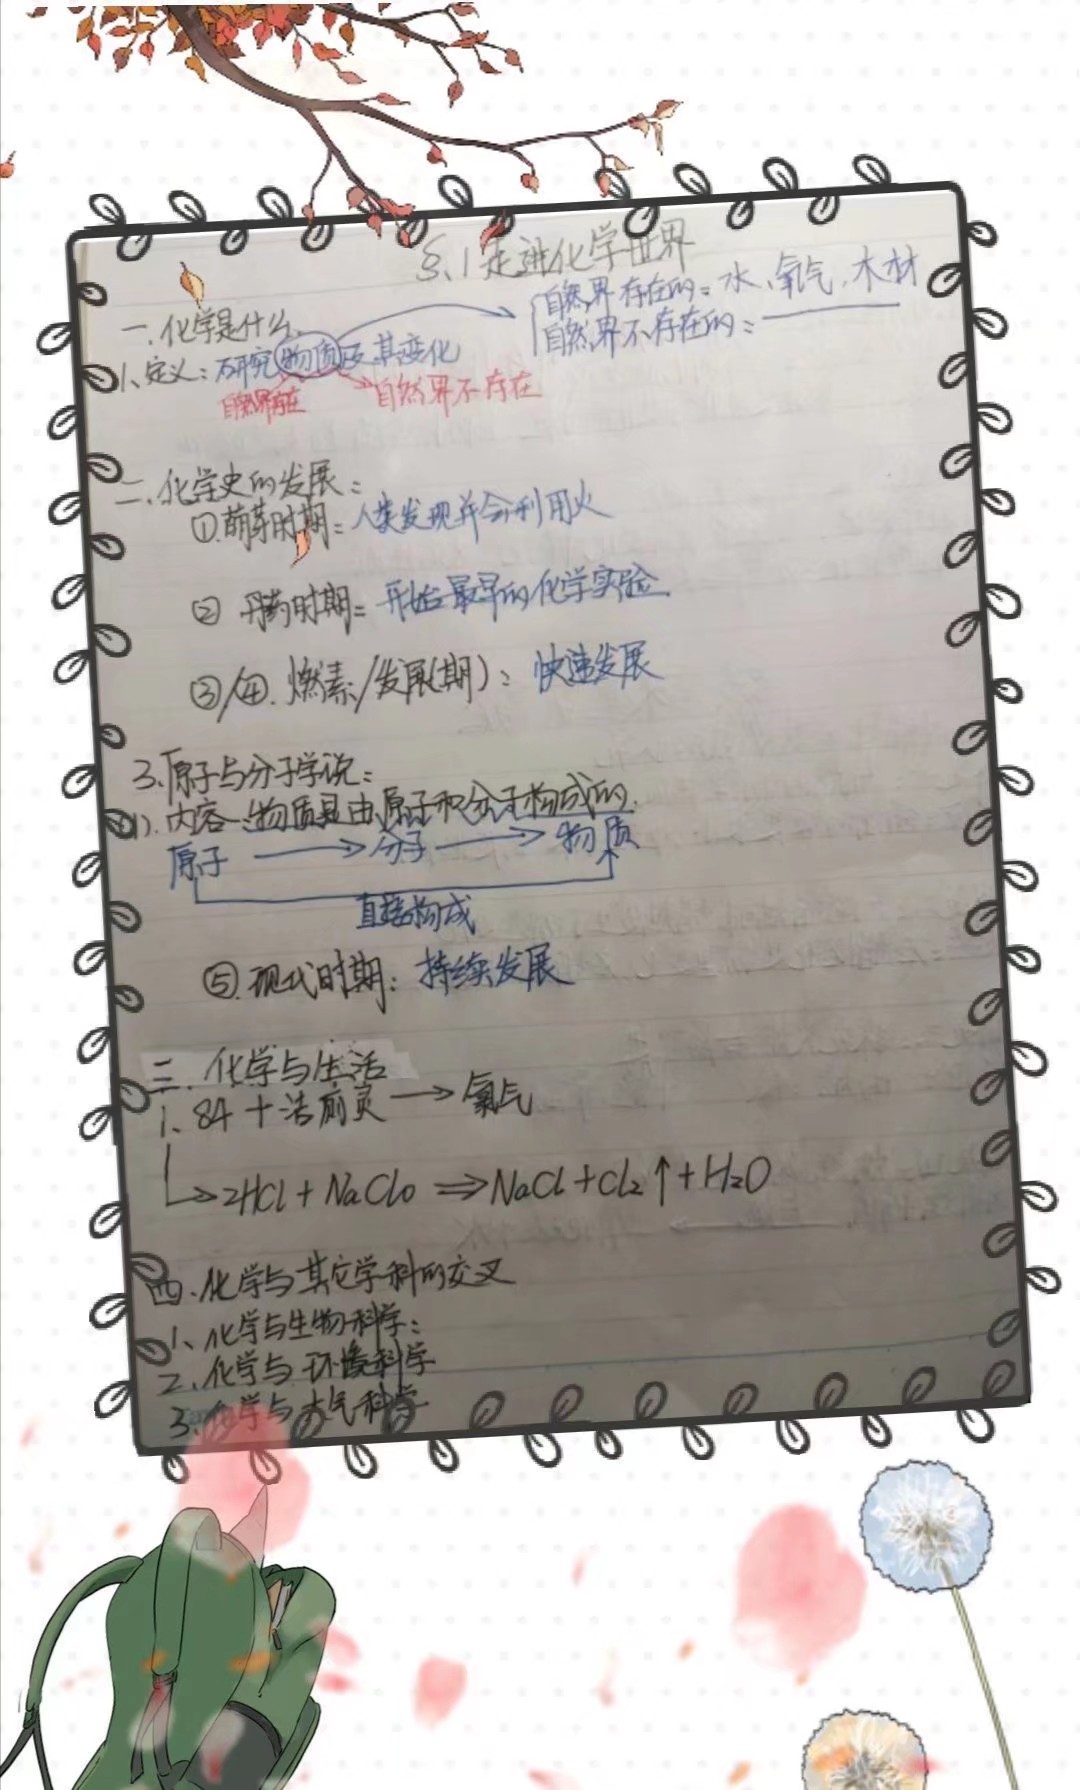 §.1走进化学世界
一.化学是什么.
自然界存在的：水、氧气、木材
自然界不存在的：
1、定义：研究物质及其变化
自然界存在
自然界不存在
二.化学史的发展：
①.萌芽时期：人类发现并会利用火
② 丹药时期：开始最早的化学实验
③/④.燃素/发展(期)：快速发展
3.原子与分子学说：
(1).内容 物质是由原子和分子构成的.
原子 → 分子 → 物质
直接构成
⑤.现代时期：持续发展
三.化学与生活
1、84+洁厕灵→氯气
2HCl+NaClO⇒NaCl+Cl₂↑+H₂O
四.化学与其它学科的交叉
1、化学与生物科学：
2.化学与环境科学
3.化学与大气科学